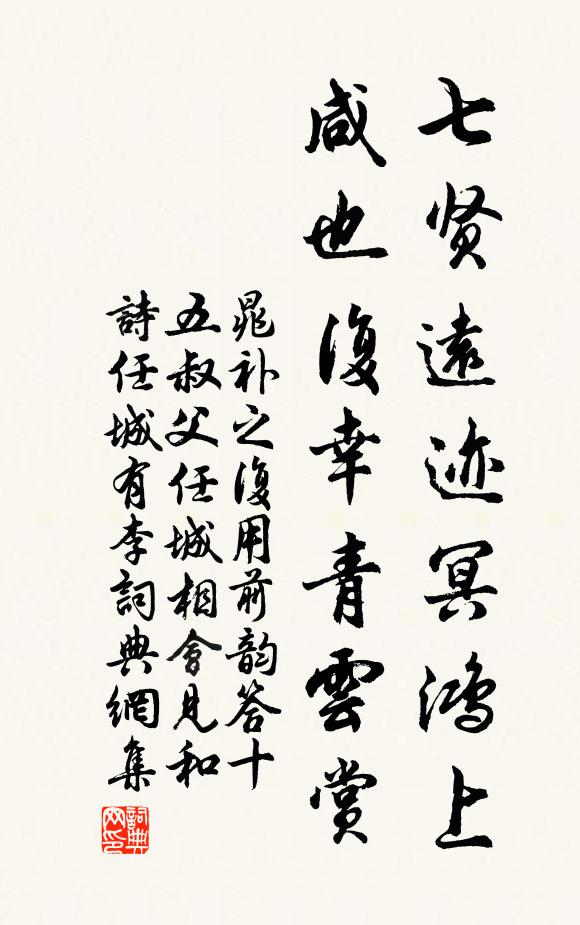 七贤遠迹冥鴻上
咸也復幸青雲賞
晁补之復用前韵答十
五叔父任城相會見和
詩任城有李詞典網集
詞典网印